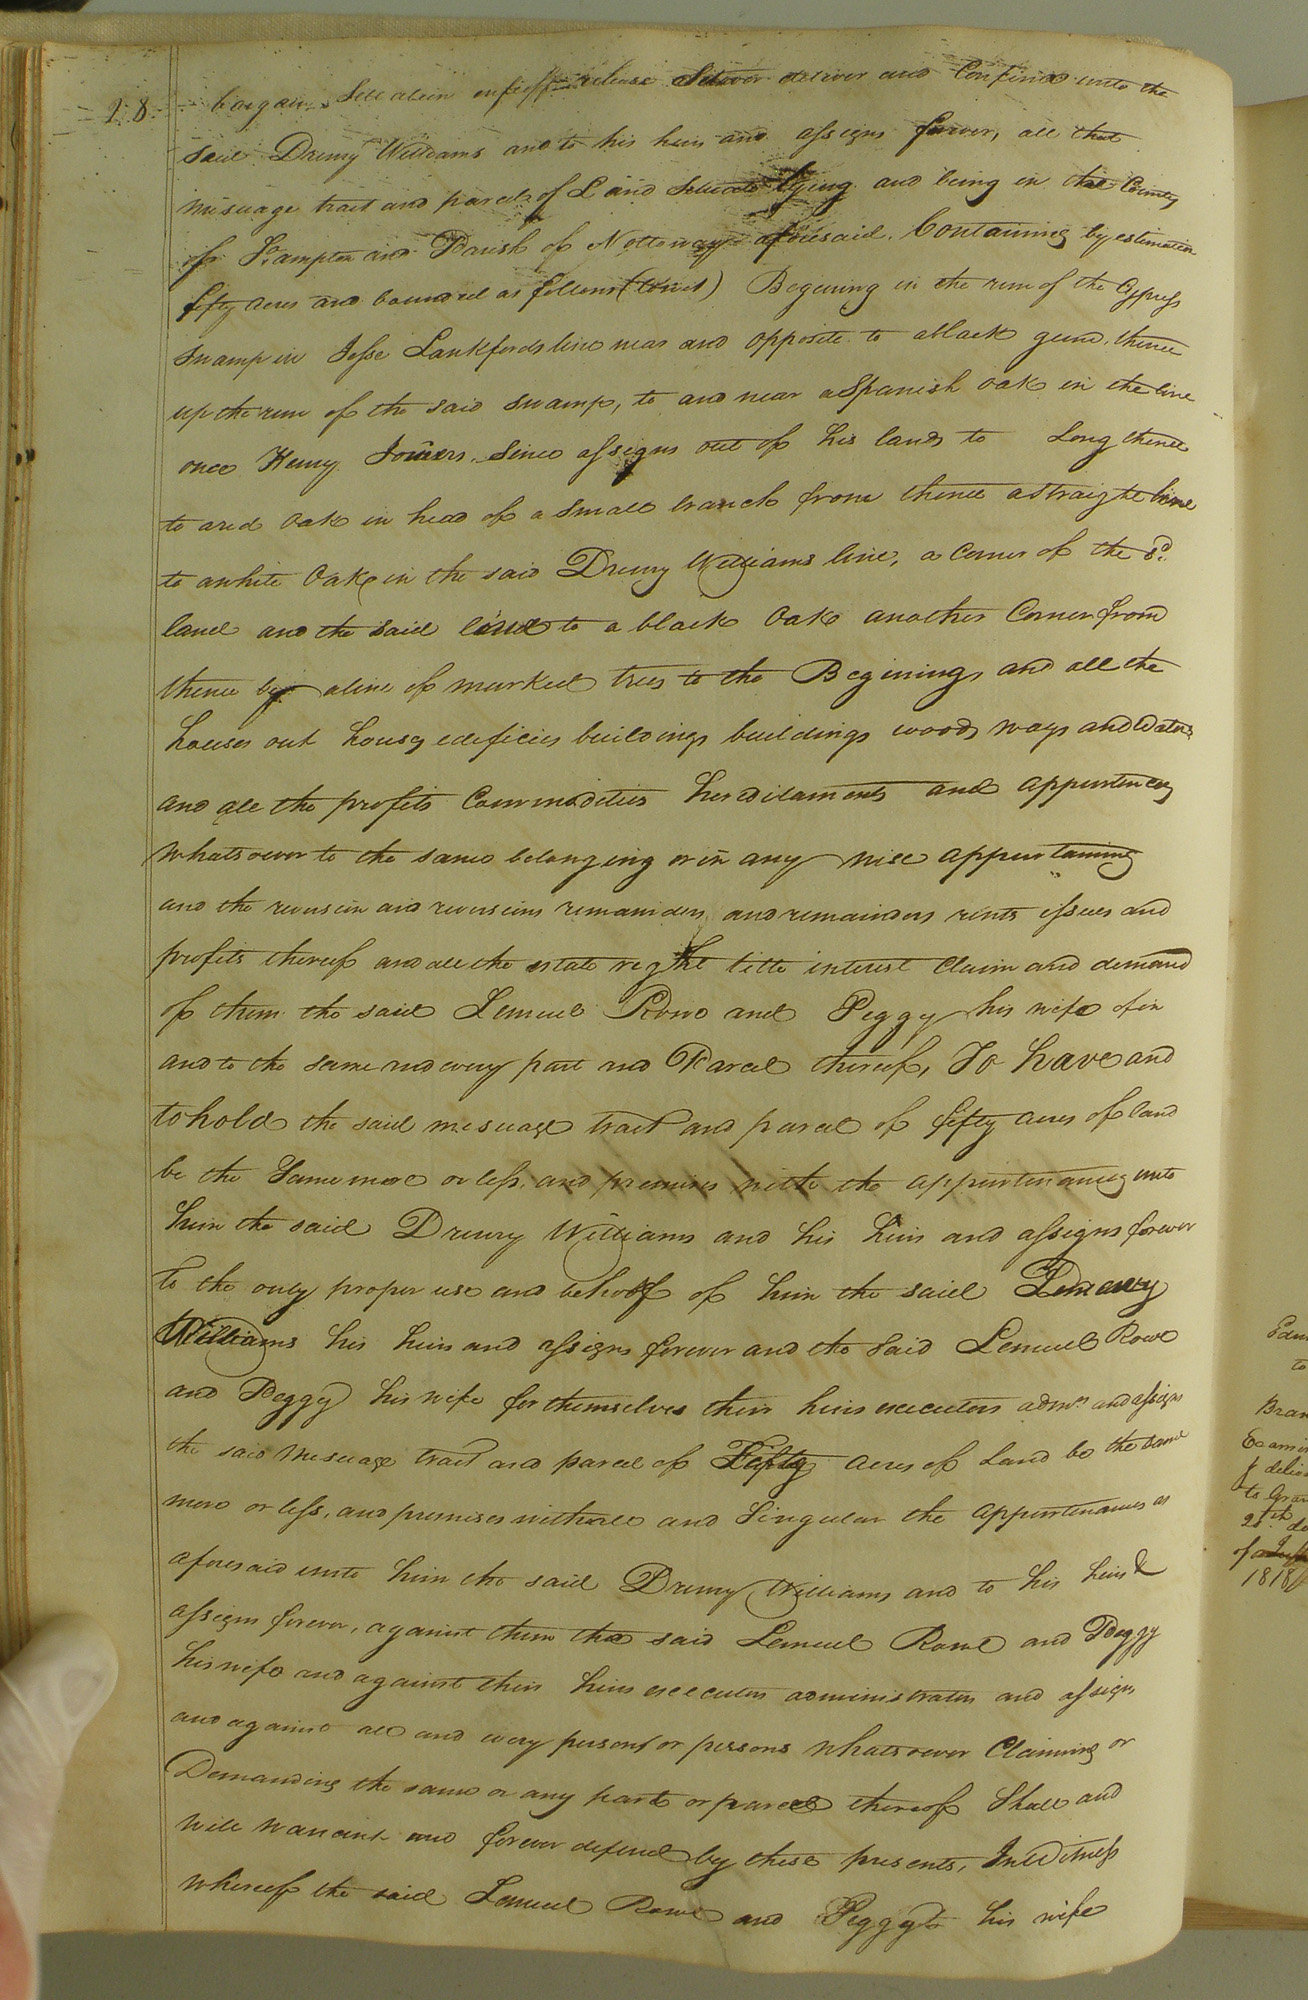 28 bargain Sell alien enfeoff release deliver and Confirm unto the
said Drewry Williams and to his heirs and assigns forever, all that
mesuage tract and parcel of Land Situate lying and being in the County
of S.hampton and Parish of Nottoway aforesaid. Containing by estimation
fifty acres and bounded as follows (towit) Begining in the run of the Cypress
swamp in Jesse Lankfords line near and opposite to a black gum, thence
up the run of the said swamp, to and near a Spanish oak in the line
once Henry Joiners Since assigns out of his lands to Long thence
to a red oak in head of a small branch from thence a straight line
to a white Oak in the said Drewry Williams line, a Corner of the sd.
land and the said line to a black Oak another Corner from
thence by a line of marked trees to the Begining and all the
houses out housg edificies buildings buildings woods ways and Waters
and all the profits Commodities hereditaments and appurtences
whatsoever to the same belonging or in any wise appurtaining
and the reversion and reversions remainders and remainders rents issues and
profits thereof and all the estate right title interest Claim and demand
of them the said Lemuel Rowe and Peggy his wife of in
and to the same and every part and Parcel thereof, To have and
to hold the said mesuage tract and parcel of fifty acres of land
be the Same more or less, and premises with the appurtenances unto
him the said Drewry Williams and his heirs and assigns forever
To the only proper use and behoof of him the said Drewry
Williams his heirs and assigns forever and the said Lemuel Rowe
and Peggy his wife for themselves their heirs executors admrs and assigns
the said Mesuage tract and parcel of Fifty acres of Land be the same
more or less, and premises with all and Singular the appurtenances as
aforesaid unto him the said Drewry Williams and to his heirs &
assigns forever, against them the said Lemuel Rowe and Peggy
his wife and against their heirs executors administrators and assigns
and against all and every person or persons whatsoever Claiming or
Demanding the same or any part or parcel thereof Shall and
will warrant and forever defend by these presents, In Witness
whereof the said Lemuel Rowe and Peggy his wife
Edm
to
Bran
Examin
& deliv
to Gran
21st d
of
1818